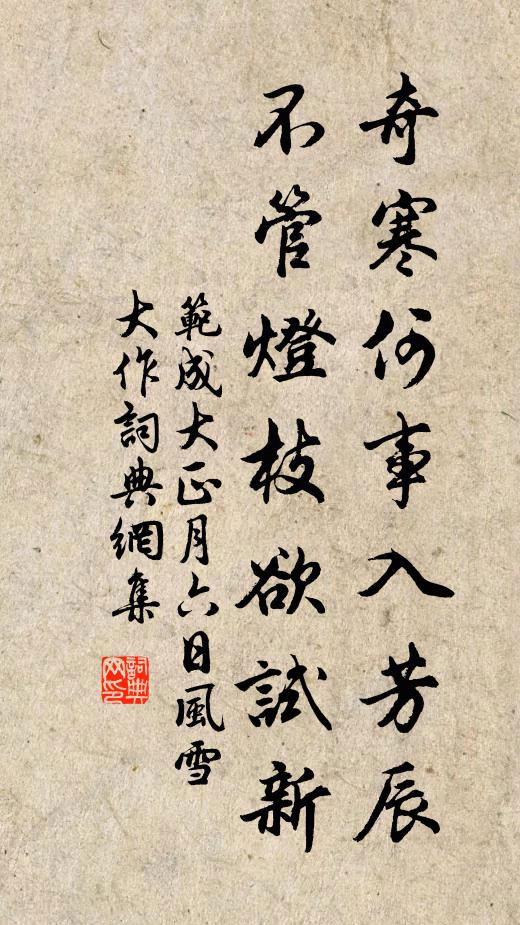 奇寒何事入芳辰
不管燈枝欲試新
範成大正月六日風雪
大作詞典網集
詞典
网印